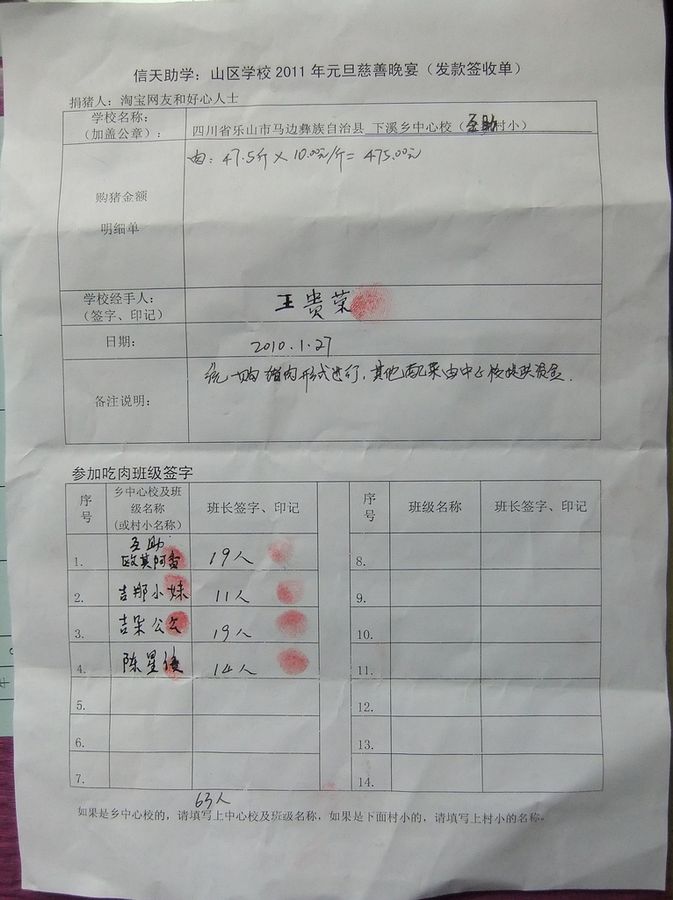 信天助学：山区学校 2011 年元旦慈善晚宴（发款签收单）
捐猪人：淘宝网友和好心人士
学校名称：
（加盖公章）：
四川省乐山市马边彝族自治县 下溪乡中心校（互助村小）
购猪金额
明细单
肉：47.5斤 × 10.00元/斤 = 475.00元
学校经手人：
（签字、印记）
王贵荣
日期：
2010.1.27
备注说明：
统一购猪肉形式进行，其他配菜由中心校提供资金.
参加吃肉班级签字
序号
乡中心校及班级名称
（或村小名称）
班长签字、印记
序号
班级名称
班长签字、印记
1.
互助
欧其阿
19人
8.
2.
吉那小妹
11人
9.
3.
吉朵公公
19人
10.
4.
陈星
14人
11.
5.
12.
6.
13.
7.
14.
63人
如果是乡中心校的，请填写上中心校及班级名称，如果是下面村小的，请填写上村小的名称。